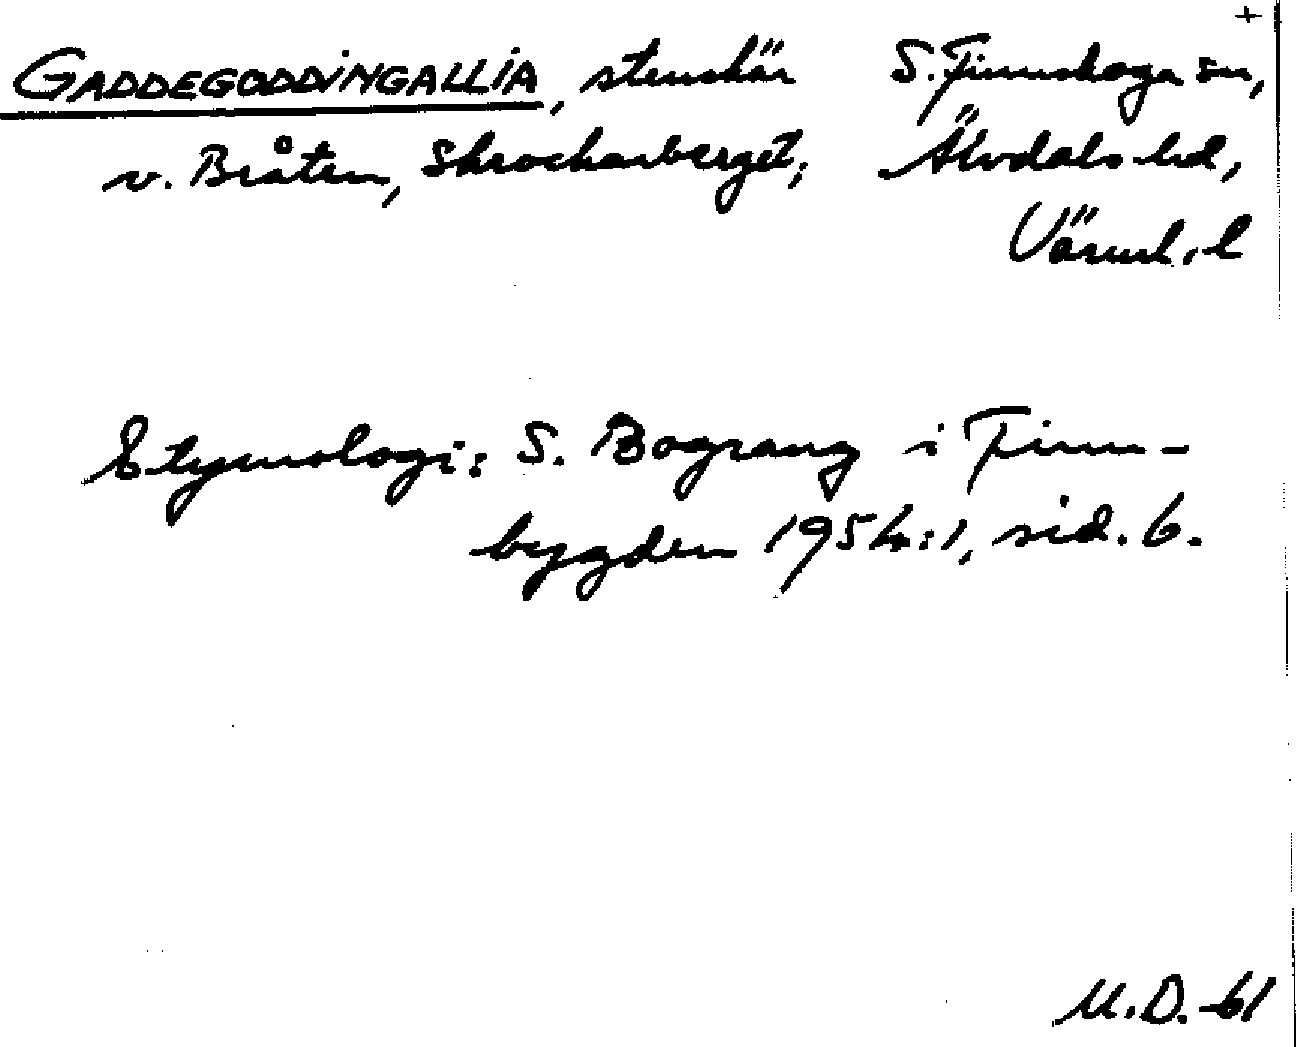 +
GADDEGODDINGALLIA, stenskär S. Finnskoga sn,
v. Bråten, Skrockarberget; Älvdals hd,
Värml. l
Etymologi: S. Bograng i Finn-
bygden 1954:1, sid. 6.
M.D.-61